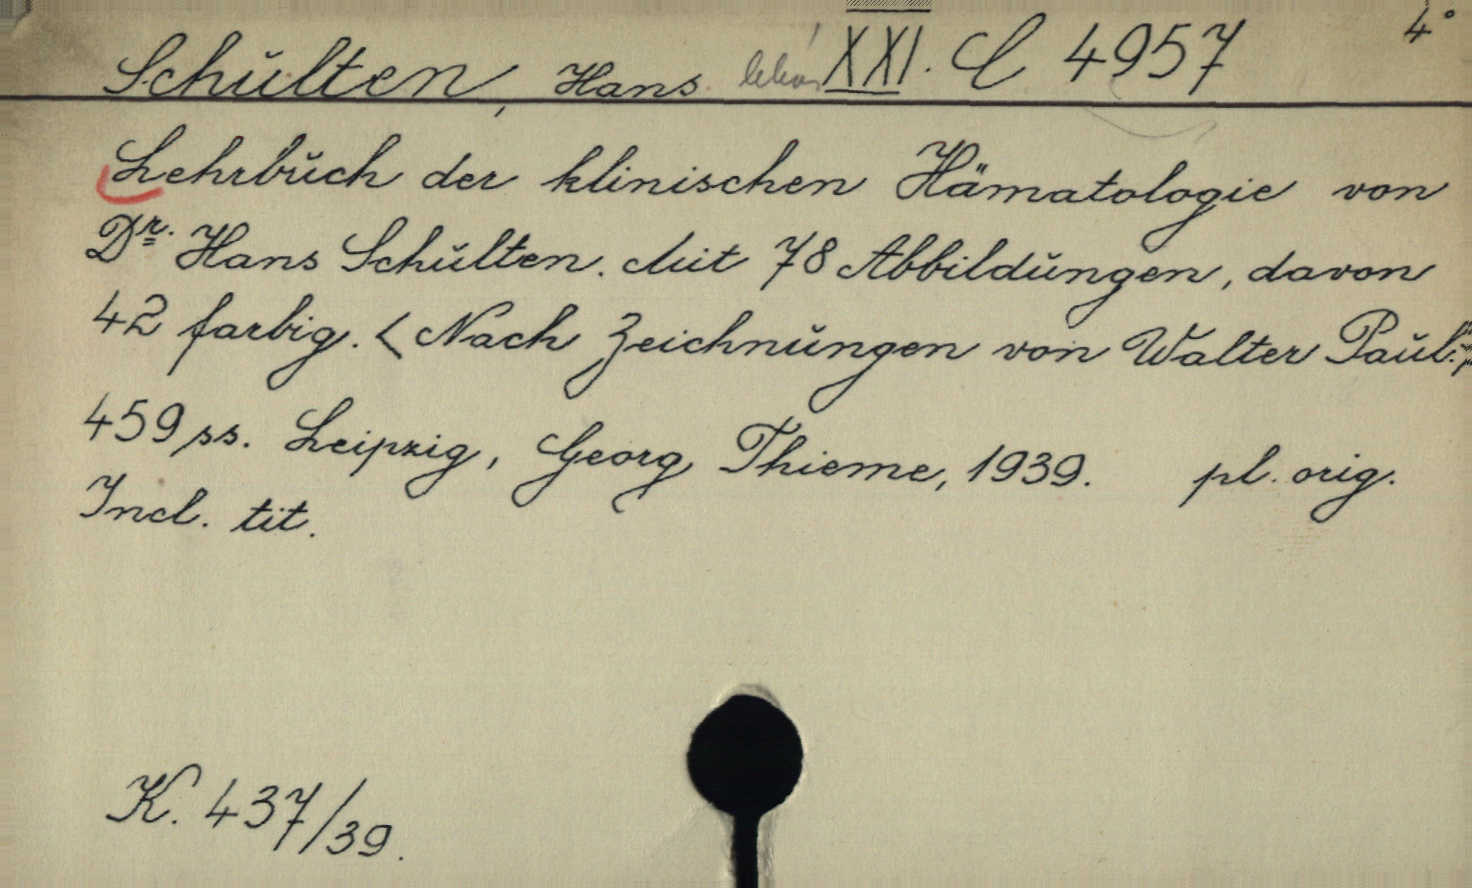 Schulten, Hans lekár XXI. C 4957 4°
Lehrbuch der klinischen Hämatologie von
Dr. Hans Schulten. Mit 78 Abbildungen, davon
42 farbig. <Nach Zeichnungen von Walter Paul.>
459 ss. Leipzig, Georg Thieme, 1939. pl. orig.
Incl. tit.
K. 437/39.